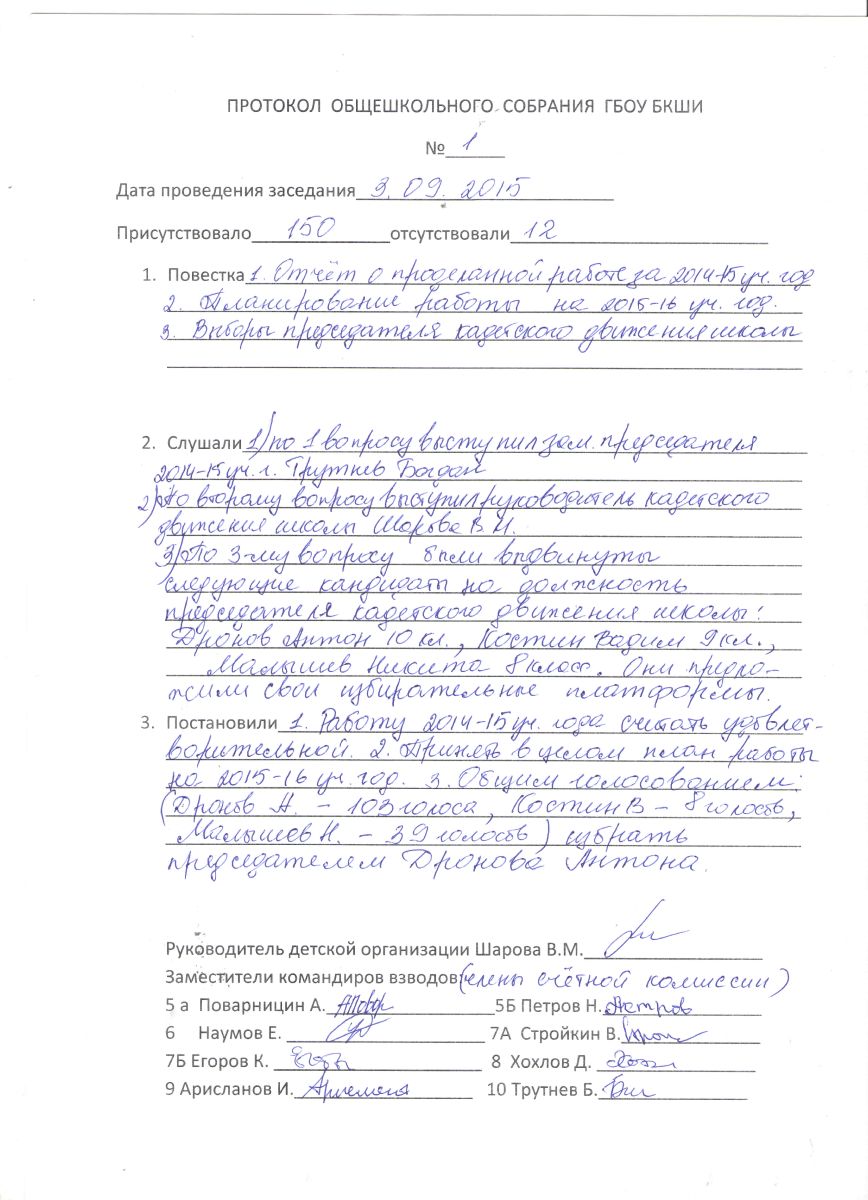 ПРОТОКОЛ ОБЩЕШКОЛЬНОГО СОБРАНИЯ ГБОУ БКШИ
№ 1
Дата проведения заседания 3.09.2015
Присутствовало 150 отсутствовали 12
1. Повестка 1. Отчёт о проделанной работе за 2014-15 уч. год
2. Планирование работы на 2015-16 уч. год.
3. Выборы председателя кадетского движения школы
2. Слушали 1) по 1 вопросу выступил зам. председателя
2014-15 уч. г. Трутнев Богдан
2) По второму вопросу выступил руководитель кадетского
движения школы Шарова В.М.
3) По 3-му вопросу были выдвинуты
следующие кандидаты на должность
председателя кадетского движения школы:
Дронов Антон 10 кл., Костин Вадим 9 кл.,
Малышев Никита 8 класс. Они предло-
жили свои избирательные платформы.
3. Постановили 1. Работу 2014-15 уч. года считать удовлет-
ворительной. 2. Принять в целом план работы
на 2015-16 уч. год. 3. Общим голосованием:
(Дронов А. – 103 голоса, Костин В – 8 голосов,
Малышев Н. – 39 голосов) избрать
председателем Дронова Антона.
Руководитель детской организации Шарова В.М.
Заместители командиров взводов (члены счётной комиссии)
5 а Поварницин А. 5Б Петров Н. Петров
6 Наумов Е. 7А Стройкин В.
7Б Егоров К. 8 Хохлов Д.
9 Арисланов И. 10 Трутнев Б.